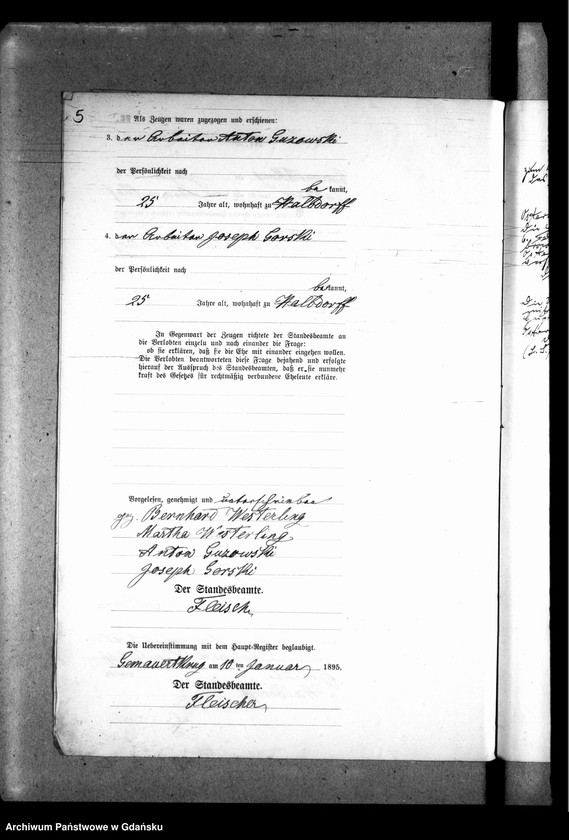 5
Als Zeugen waren zugezogen und erschienen:
3. der Arbeiter Anton Guzowski
der Persönlichkeit nach
bekannt,
25 Jahre alt, wohnhaft zu Walddorff
4. der Arbeiter Joseph Gorski
der Persönlichkeit nach
bekannt,
25 Jahre alt, wohnhaft zu Walddorff
In Gegenwart der Zeugen richtete der Standesbeamte an
die Verlobten einzeln und nach einander die Frage:
ob sie erklären, daß sie die Ehe mit einander eingehen wollen.
Die Verlobten beantworteten diese Frage bejahend und erfolgte
hierauf der Ausspruch des Standesbeamten, daß er sie nunmehr
kraft des Gesetzes für rechtmäßig verbundene Eheleute erkläre.
Vorgelesen, genehmigt und unterschrieben
gez. Bernhard Westerling
Martha Westerling
Anton Guzowski
Joseph Gorski
Der Standesbeamte.
Fleischer
Die Uebereinstimmung mit dem Haupt-Register beglaubigt.
Gemauertkrug am 10 ten Januar 1895.
Der Standesbeamte.
Fleischer
Archiwum Państwowe w Gdańsku